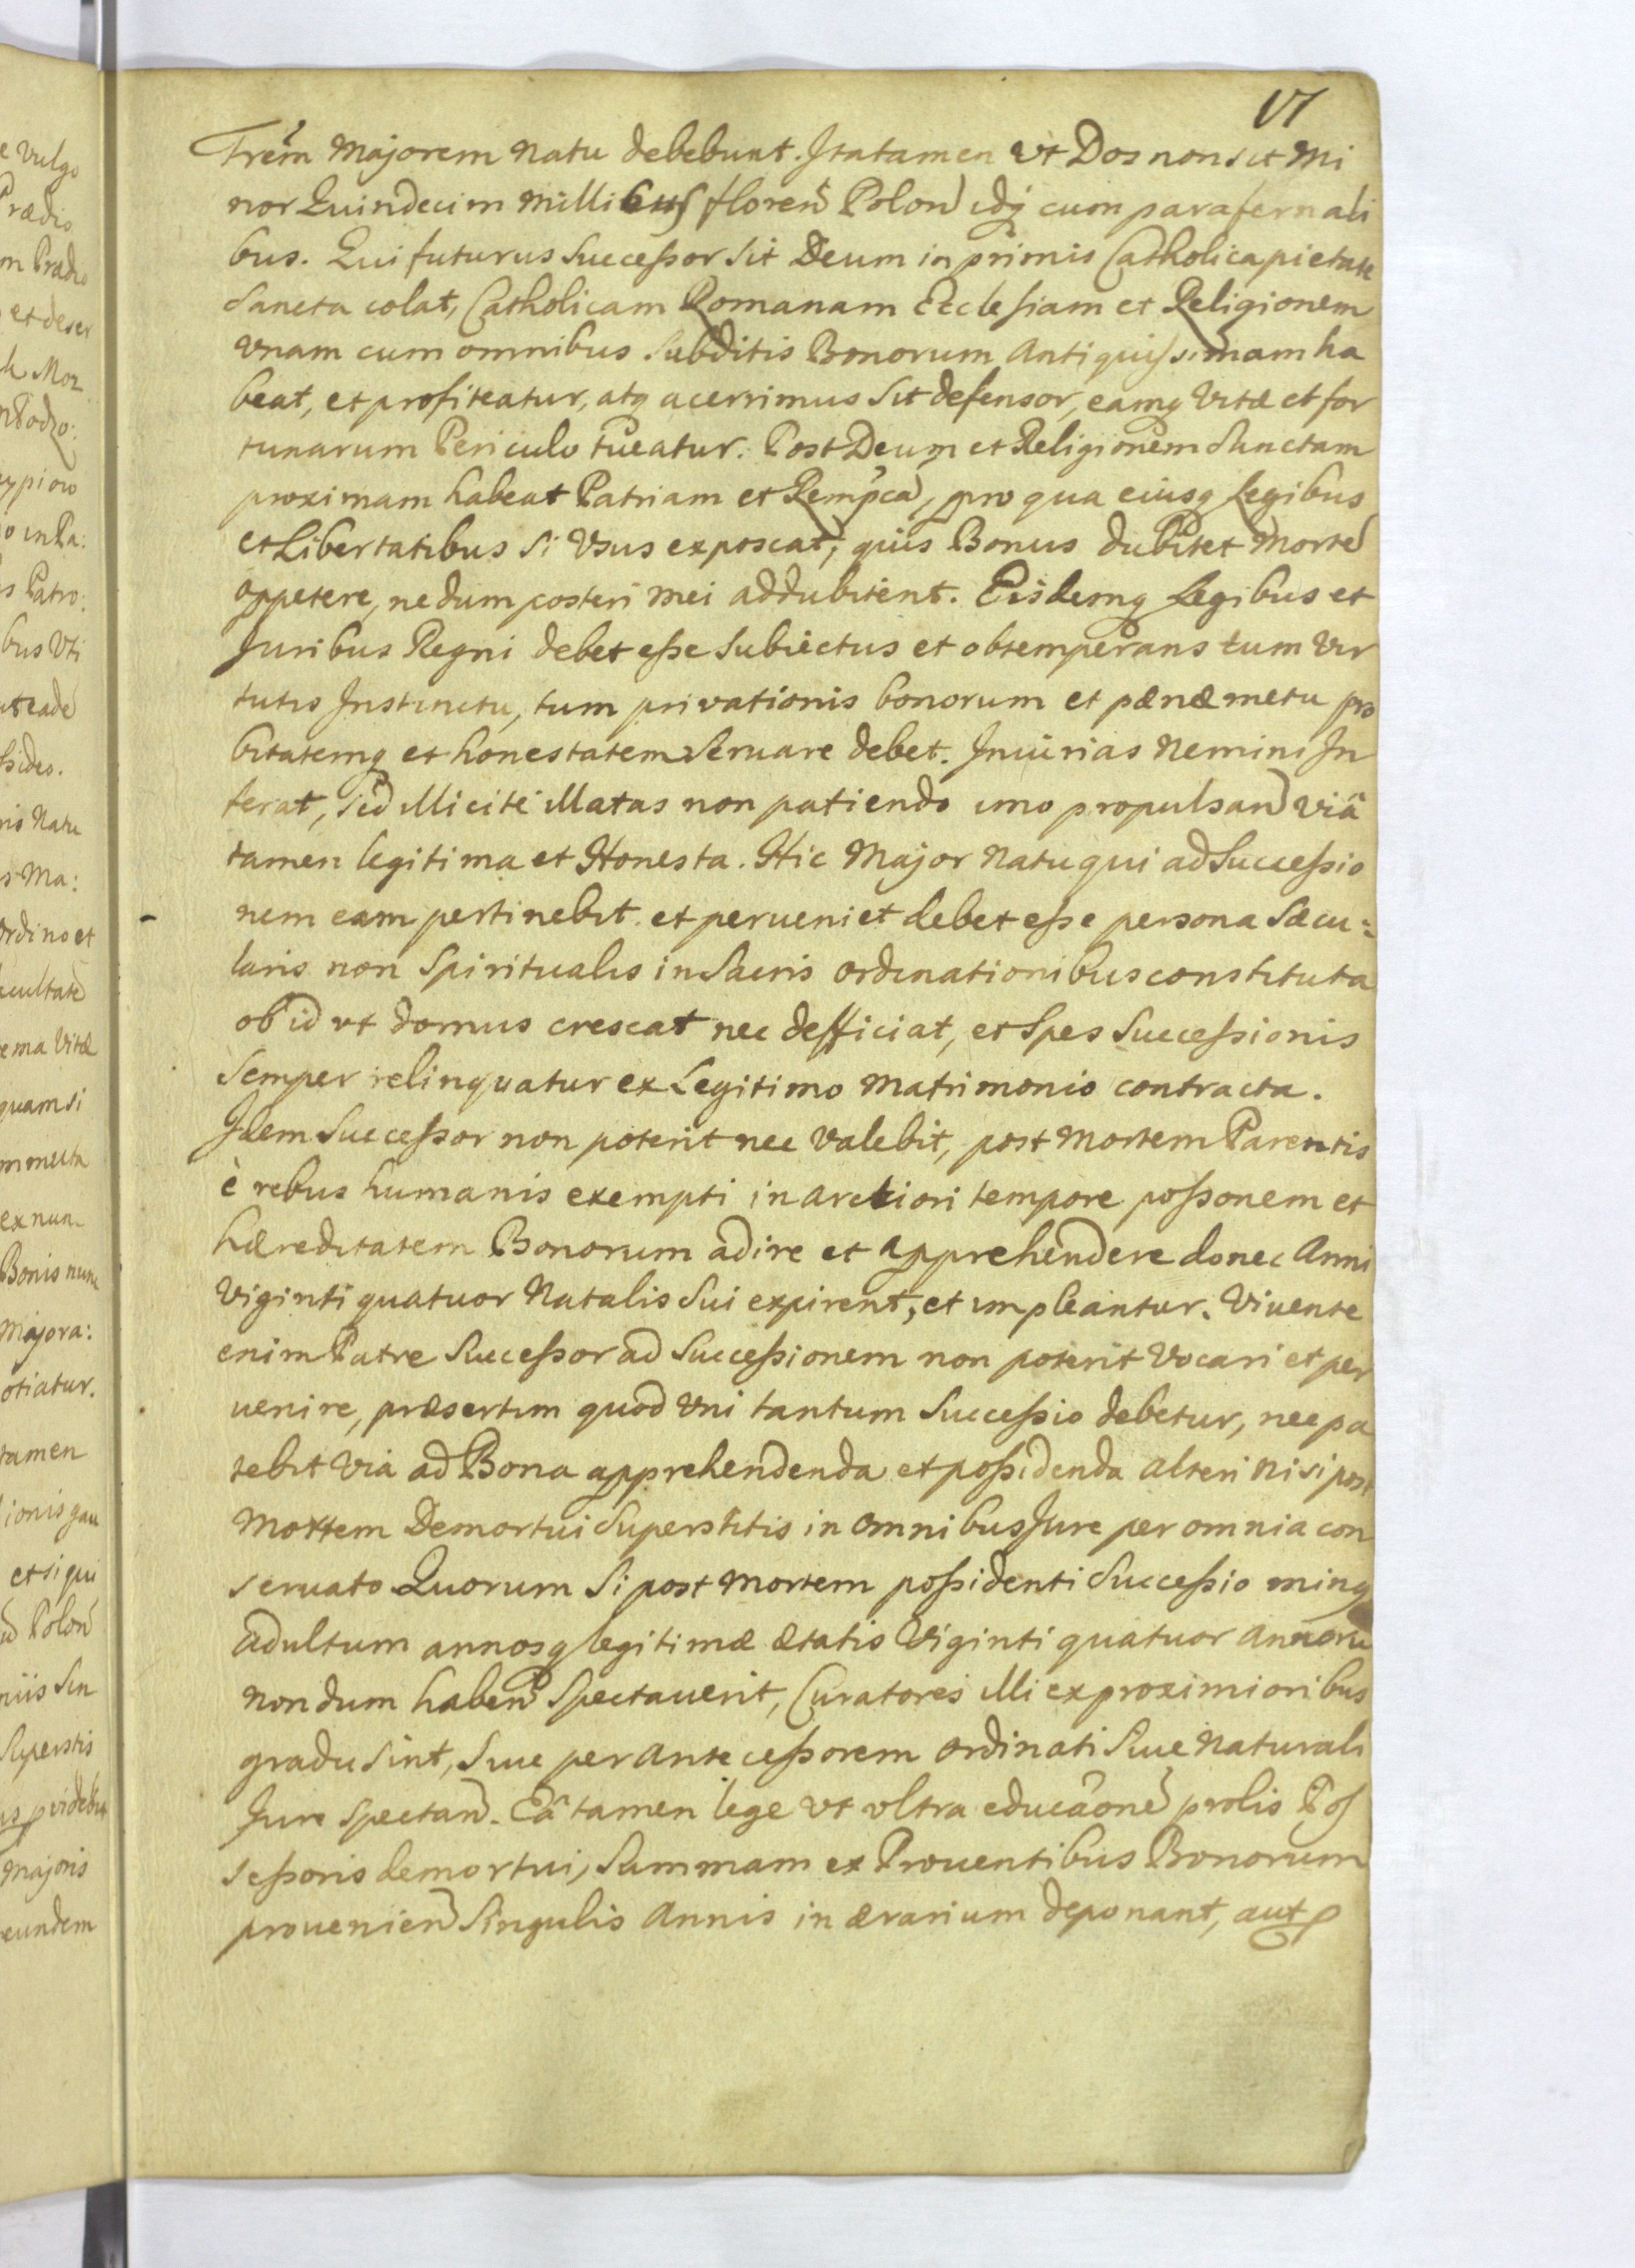 VI
Frem Majorem Natu debebunt. Itatamen Vt Dos non sit Mi
nor Quindecim Millibus floreñ Poloñ idq cum parafernali
bus. Qui futurus Successor Sit Deum in primis Catholica pietate
Sancta colat, Catholicam Romanam Ecclesiam et Religionem
Vnam cum omnibus Subditis Bonorum Antiquissimam ha
beat, et profiteatur, atq acerrimus Sit defensor, eamq Vitæ et for
tunarum Periculo tueatur. Post Deum et Religionem Sanctam
proximam habeat Patriam et Rempcã, pro qua eiusq Legibus
et Libertatibus Si Vsus exposcat, quis Bonus dubitet Morte
oppetere, nedum posteri mei addubitent. Eisdemq Legibus et
Juribus Regni debet esse Subiectus et obtemperans tum Vir
tutis Instinctu, tum privationis bonorum et pænæ metu pro
bitatemq et honestatem Seruare debet. Iniurias Nemini In
ferat, Sed illicite illatas non patiendo imo propulsand viâ
tamen legitima et Honesta. Hic Major Natu qui ad Successio
nem eam pertinebit et perueniet debet esse persona Sæcu:
laris non Spiritualis in Sacris ordinationibus constituta
ob id vt domus crescat nec defficiat, et Spes Successionis
Semper relinquatur ex Legitimo Matrimonio contracta.
Idem Successor non poterit nec Valebit, post mortem Parentis
è rebus humanis exempti in arctiori tempore possonem et
hæreditatem Bonorum adire et apprehendere donec Anni
Viginti quatuor Natalis Sui expirent, et impleantur. Viuente
enim Patre Successor ad Successionem non poterit Vocari et per
uenire, præsertim quod Vni tantum Successio debetur, nec pa
tebit Via ad Bona apprehendenda et possidenda alteri nisi post
Mortem Demortui Superstitis in omnibus Jure per omnia con
seruato Quorum Si post mortem possidenti Successio minq
adultum annosq legitimæ ætatis Viginti quatuor Annoru
nondum haben Spectauerit, Curatores illi ex proximioribus
gradu Sint, Siue per Antecessorem ordinati Siue Naturali
Jure Spectan. Eâ tamen lege Vt Vltra educâone prolis Pos
sessoris demortui, Summam ex Prouentibus Bonorum
prouenien Singulis Annis in ærarium deponant, aut
e Vulgo
Prædio
m Prædio
et deser
Moz
o in Pa:
s Patro:
bus Vti
ssideo.
ris Natu
s Ma:
Ordino et
ema Vitæ
quam si
ex nun
Bonis nunc
Majora:
otiatur.
tamen
ionis gau
et si qui
Poloñ
Superstis
Majoris
eundem